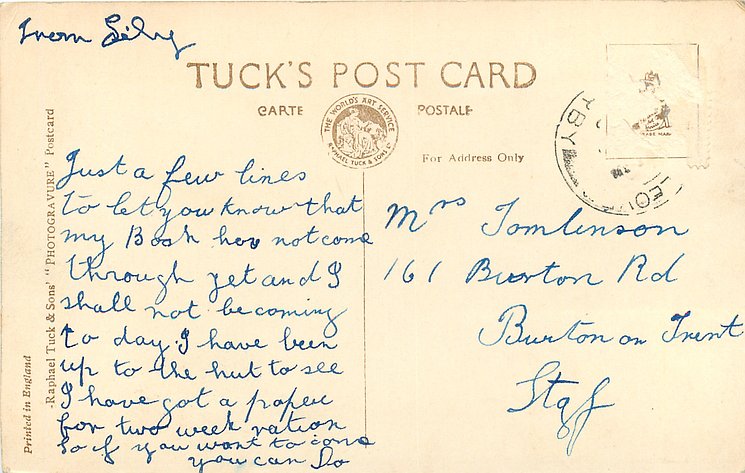 From Silvy
TUCK'S POST CARD
CARTE POSTALE
THE WORLD'S ART SERVICE
RAPHAEL TUCK & SONS LD
For Address Only
BY
Just a few lines
to let you know that
my Book has not come
through yet and I
shall not be coming
to day. I have been
up to the hut to see
I have got a paper
for two week ration
so if you want to come
you can do
Mrs Tomlinson
161 Burton Rd
Burton on Trent
Staf
Printed in England
-Raphael Tuck & Sons' "PHOTOGRAVURE" Postcard